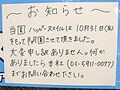 ～お知らせ～
当園ハッピースマイルは10月31日(金)
をもって閉園させて頂きました。
大変申し訳ありません。何か
ありましたら本社(03-5911-0077)
までお問い合わせ下さい。